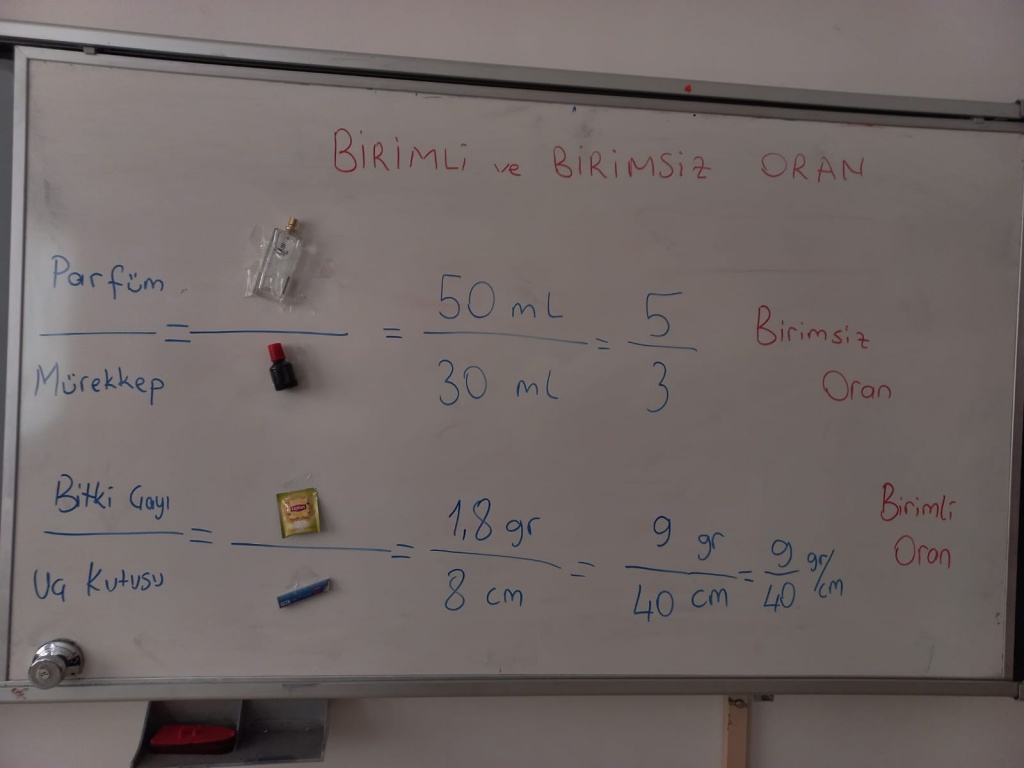 BİRİMLİ ve BİRİMSİZ ORAN
Parfüm
Mürekkep
= = 50 ml / 30 ml = 5 / 3
Birimsiz
Oran
Bitki Çayı
Uç Kutusu
= = 1,8 gr / 8 cm = 9 gr / 40 cm = 9 / 40 gr/cm
Birimli
Oran